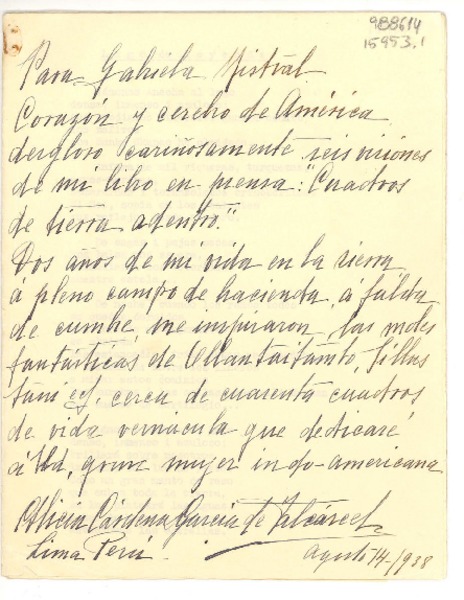 988614
15953.1
Para Gabriela Mistral
Corazón y cerebro de América
desgloso cariñosamente seis visiones
de mi libro en prensa: "Cuadros
de tierra adentro".
Dos años de mi vida en la sierra
á pleno campo de hacienda, á falda
de cumbre, me inspiraron, las moles
fantásticas de Ollantaitambo, Sillus
tani cerca de cuarenta cuadros
de vida vernácula que dedicaré
á Ud, mujer indo-americana
Alicia Cárdena García de Valcárcel
Lima Perú
Agosto 14-/938